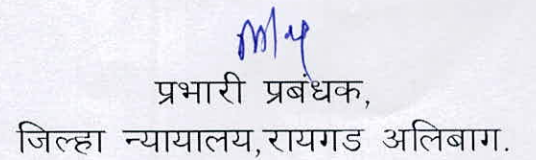 प्रभारी प्रबंधक,
जिल्हा न्यायालय,रायगड अलिबाग.